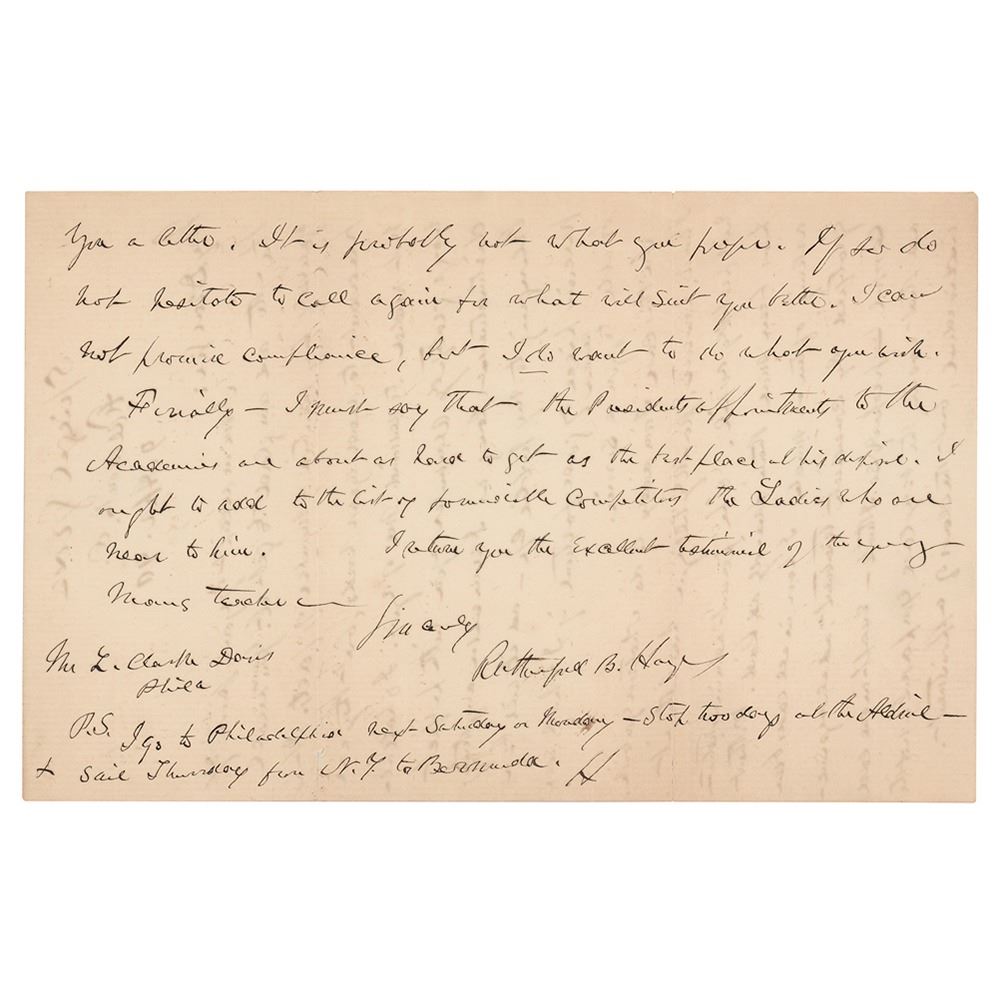 you a letter. It is probably not what you prefer. If so do
not hesitate to call again for what will suit you better. I can
not promise compliance, but I do want to do what you wish.
Finally — I must say that the Presidents appointments to the
Academies are about as hard to get as the best place at his disposal. I
ought to add to the list of formidable competitors the Ladies who are
near to him. I return you the excellent testimonial of the young
teacher —
Sincerely
Rutherford B. Hayes
Mr L. Clarke Davis
Phila
P.S. I go to Philadelphia next Saturday or Monday — Stop two days at the Aldine —
+ sail Thursday from N.Y. to Bermuda. H